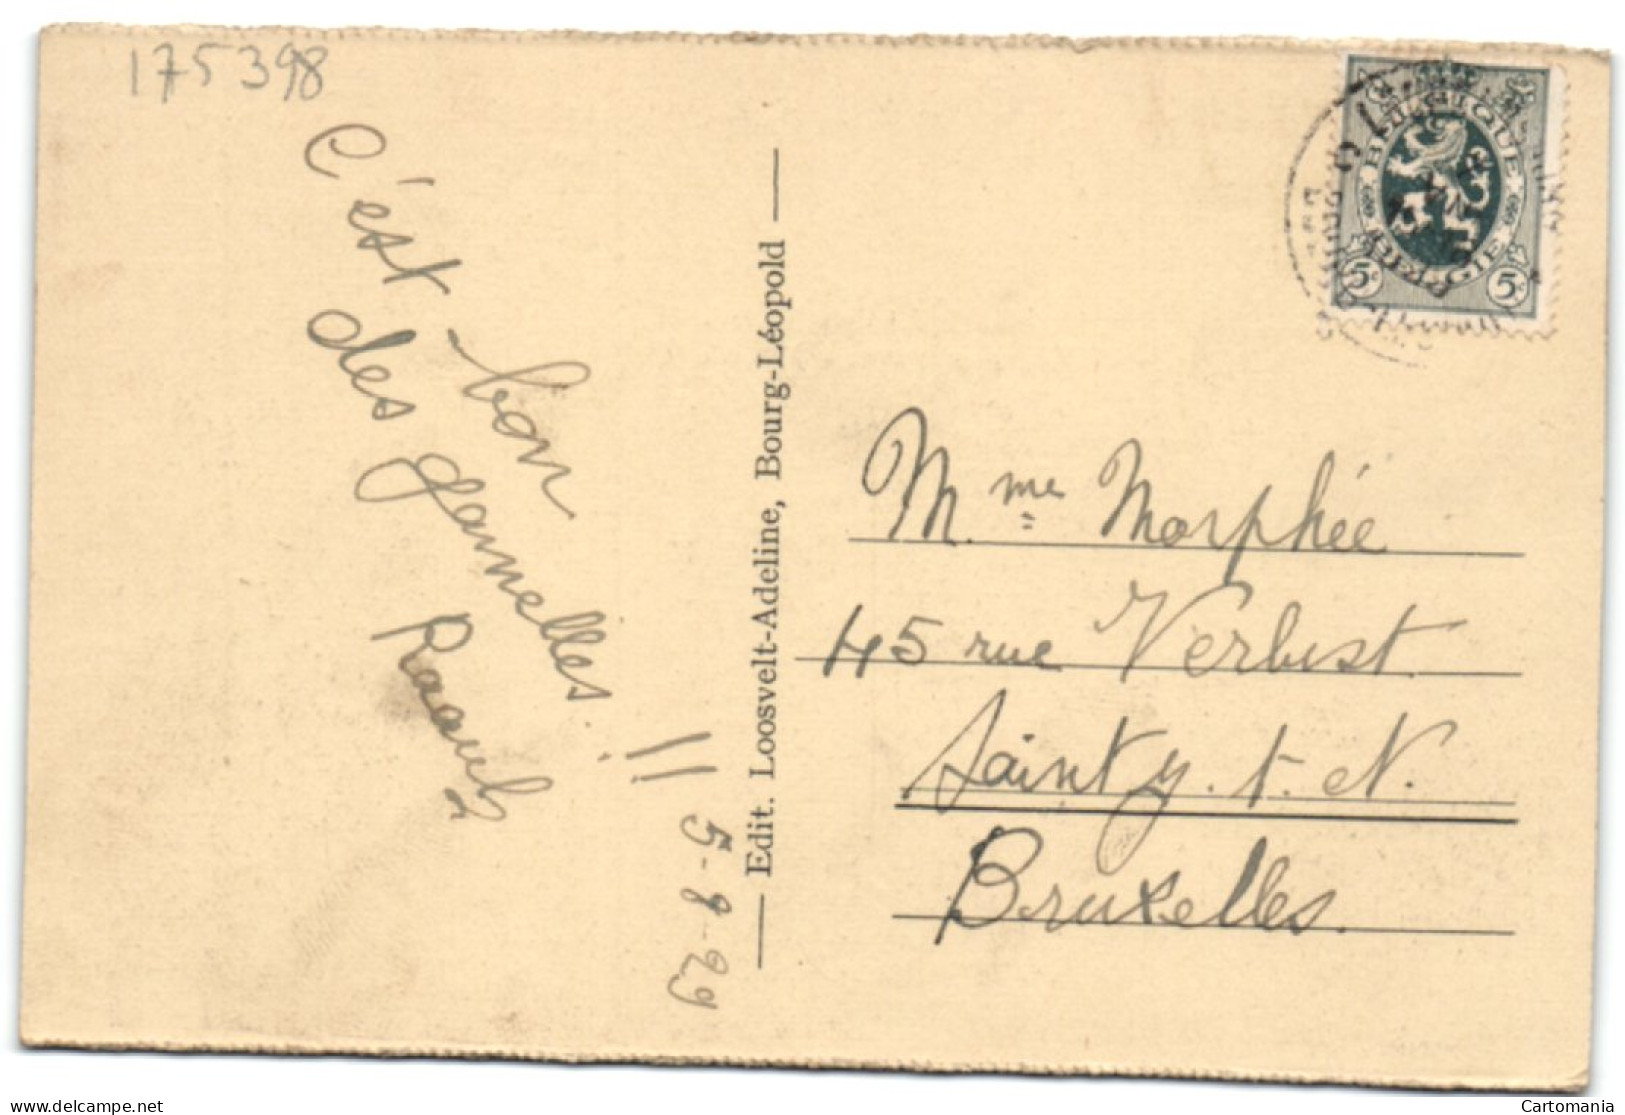 175398
C'est bon
des gamelles !!
Raoul
5-8-29
Edit. Loosvelt-Adeline, Bourg-Léopold
BELGIQUE
BELGIE
5c 5c
Mme Morphée
45 rue Verbist
Saint y. t. N.
Bruxelles.
www.delcampe.net
Cartomania